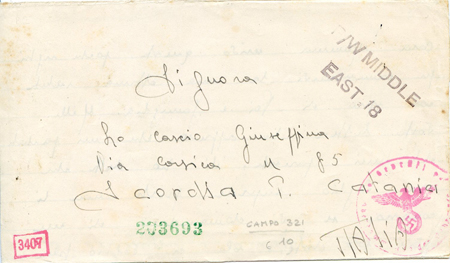 P/W MIDDLE
EAST. 18
Signora
Lo Cascio Giuseppina
Via Corsica N 85
Scordia P. Catania
ITALIA
203693
CAMPO 321
C 10
3407